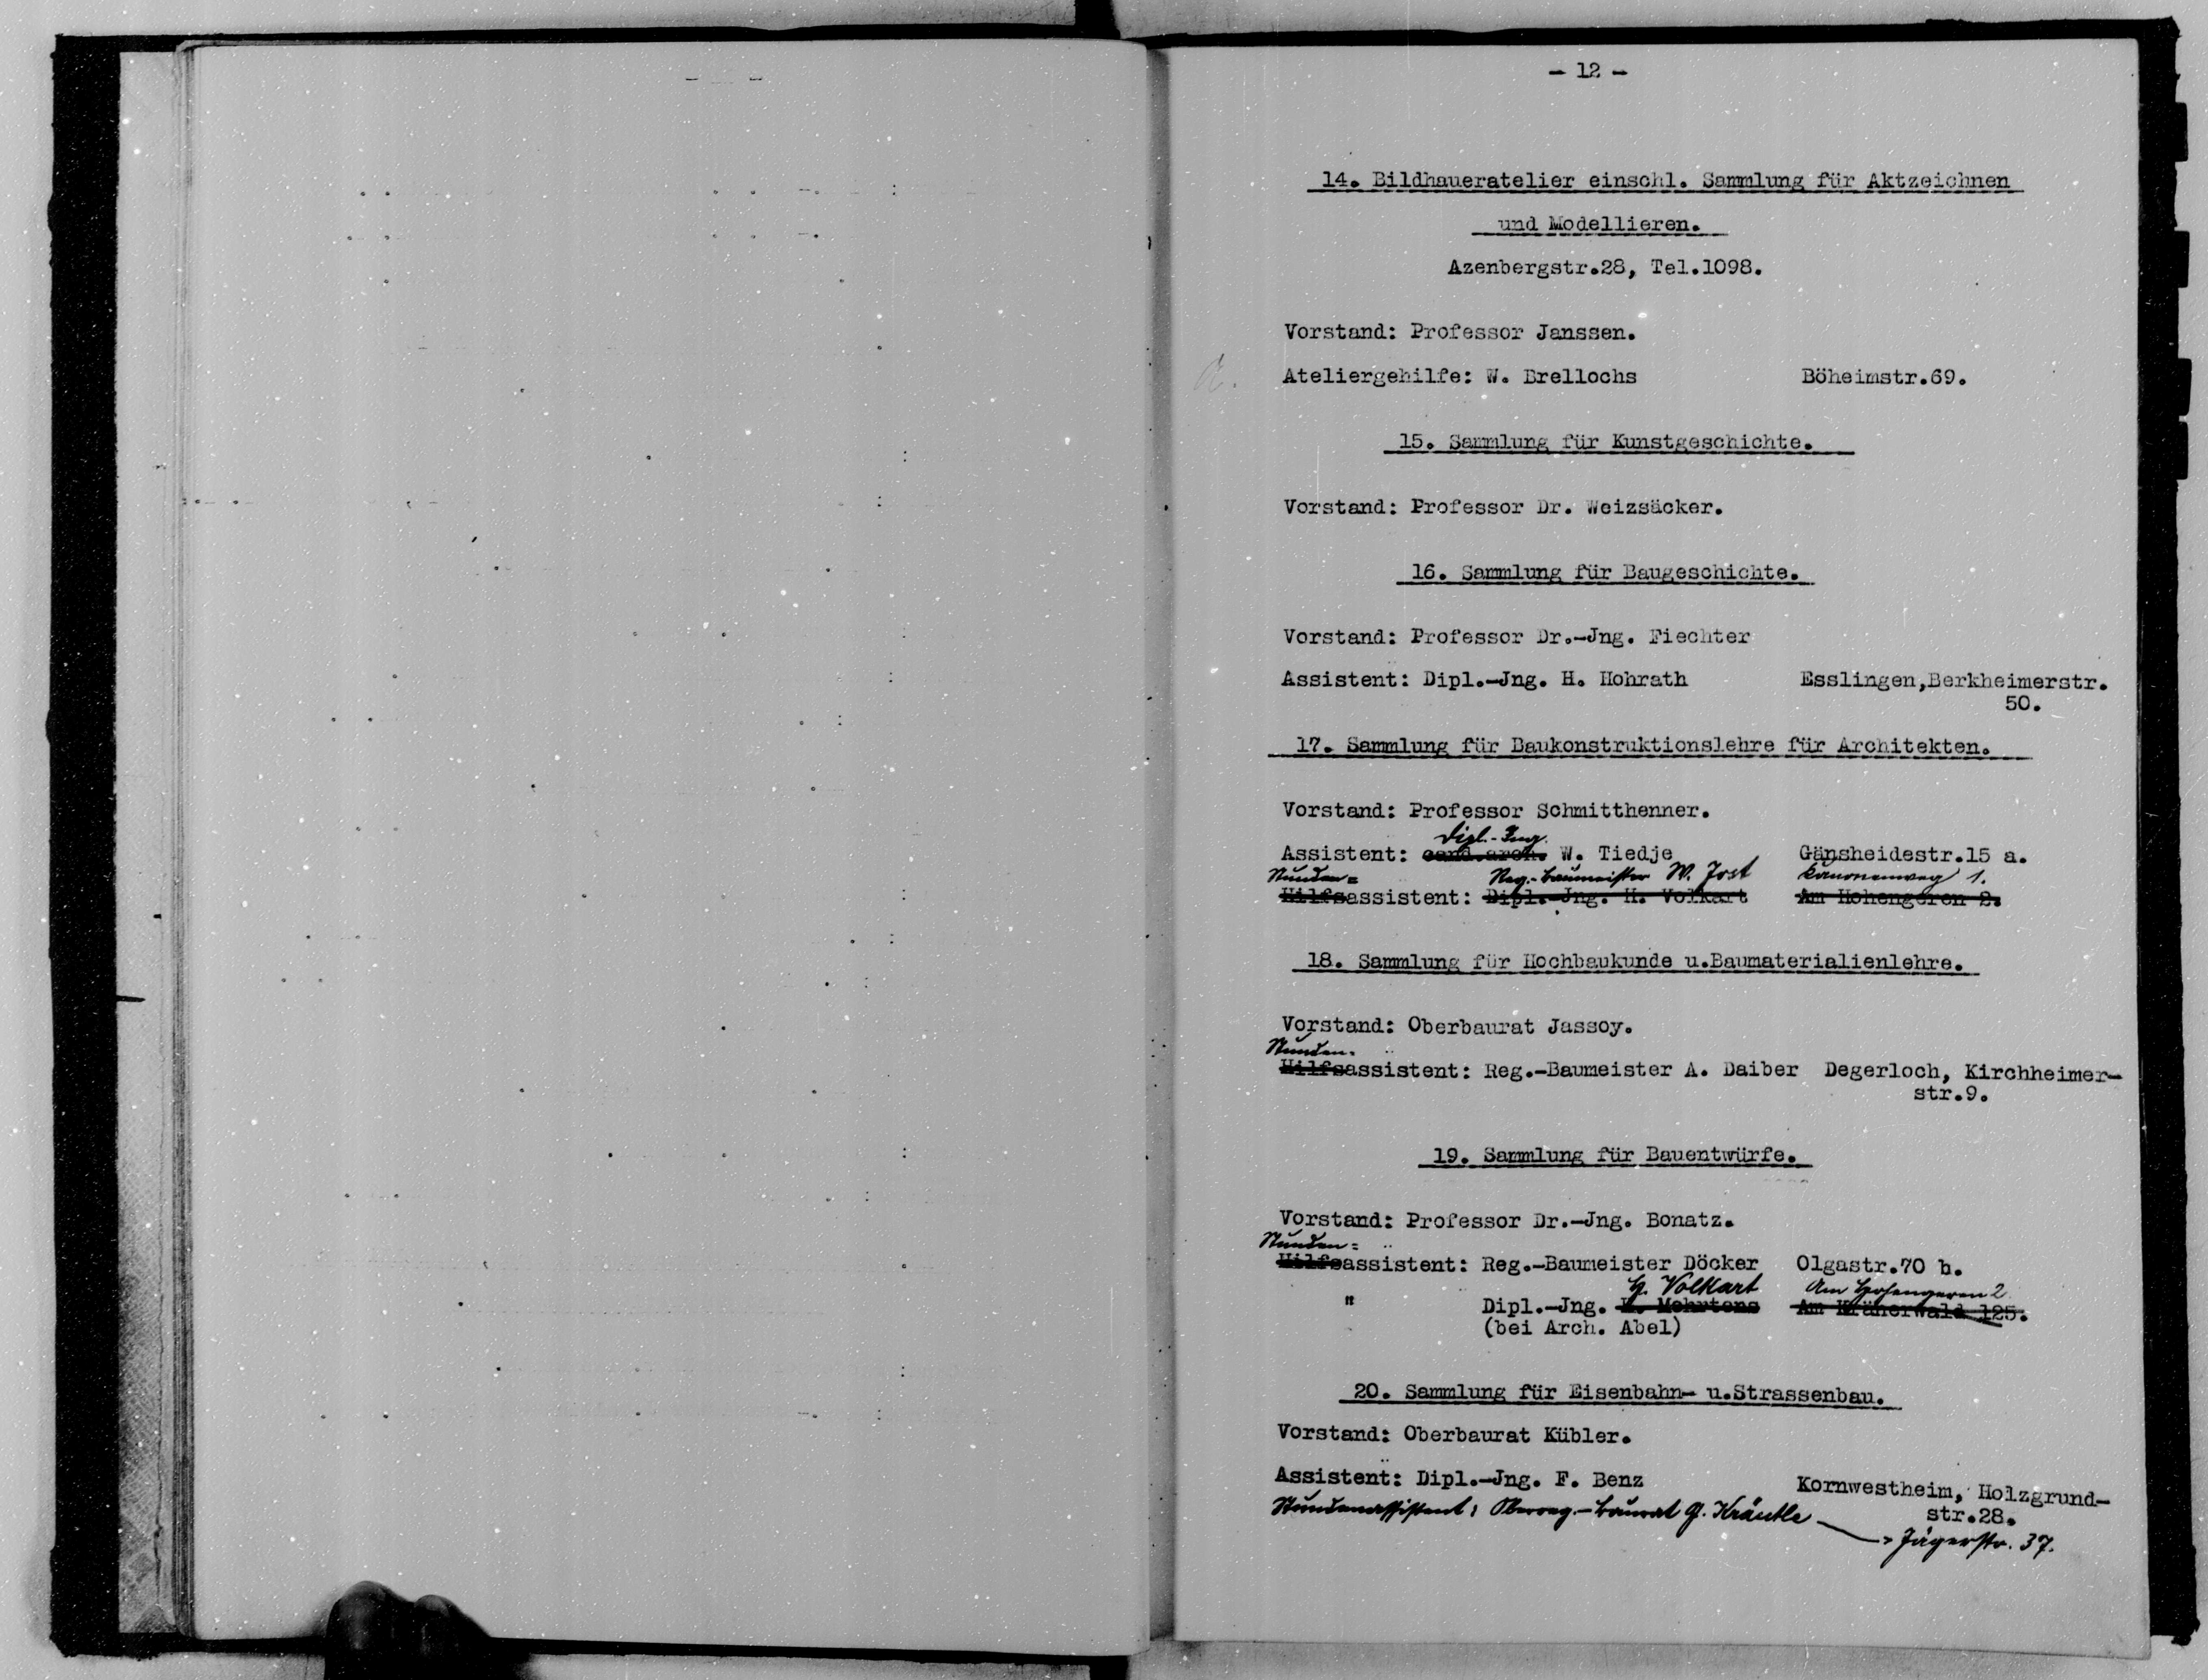 - 12 -
14. Bildhaueratelier einschl. Sammlung für Aktzeichnen
und Modellieren.
Azenbergstr.28, Tel.1098.
Vorstand: Professor Janssen.
Ateliergehilfe: W. Brellochs Böheimstr.69.
15. Sammlung für Kunstgeschichte.
Vorstand: Professor Dr. Weizsäcker.
16. Sammlung für Baugeschichte.
Vorstand: Professor Dr.-Jng. Fiechter
Assistent: Dipl.-Jng. H. Hohrath Esslingen,Berkheimerstr.
50.
17. Sammlung für Baukonstruktionslehre für Architekten.
Vorstand: Professor Schmitthenner.
Dipl.-Ing.
Assistent: cand.arch. W. Tiedje Gänsheidestr.15 a.
Stunden= Reg.-Baumeister W. Jost Kanonenweg 1.
Hilfsassistent: Dipl.-Jng. H. Volkart Am Hohengeren 2.
18. Sammlung für Hochbaukunde u.Baumaterialienlehre.
Vorstand: Oberbaurat Jassoy.
Stunden-
Hilfsassistent: Reg.-Baumeister A. Daiber Degerloch, Kirchheimer-
str.9.
19. Sammlung für Bauentwürfe.
Vorstand: Professor Dr.-Jng. Bonatz.
Stunden=
Hilfsassistent: Reg.-Baumeister Döcker Olgastr.70 b.
H. Volkart Am Hohengeren 2
" Dipl.-Jng. H. Mehrtens Am Kräherwald 125.
(bei Arch. Abel)
20. Sammlung für Eisenbahn- u.Strassenbau.
Vorstand: Oberbaurat Kübler.
Assistent: Dipl.-Jng. F. Benz Kornwestheim, Holzgrund-
str.28.
Stundenassistent: Oberreg.-Baurat G. Kräutle
Jägerstr. 37.